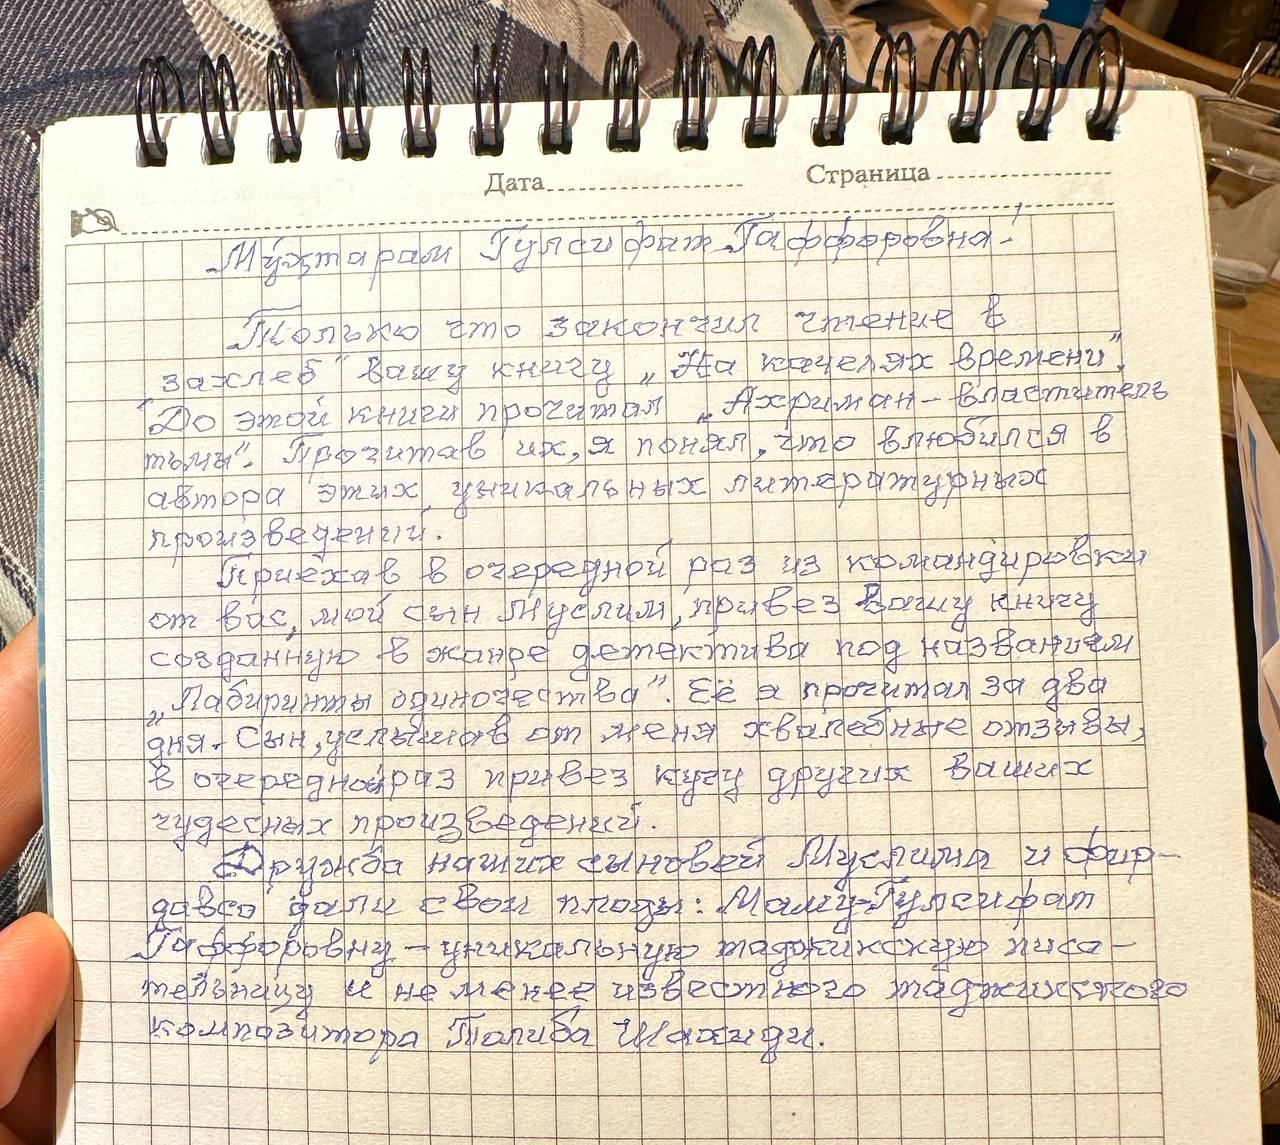 Дата
Страница
Мухтарам Гулсифат Гаффоровна!
Только что закончил чтение "в
захлеб" вашу книгу „На качелях времени".
До этой книги прочитал „Ахриман - властитель
тьмы". Прочитав их, я понял, что влюбился в
автора этих уникальных литературных
произведений.
Приехав в очередной раз из командировки
от вас, мой сын Муслим, привез Вашу книгу
созданную в жанре детектива под названием
„Лабиринты одиночества". Её я прочитал за два
дня. Сын, услышав от меня хвалебные отзывы,
в очередной раз привез кучу других ваших
чудесных произведений.
Дружба наших сыновей Муслима и Фир-
давса дали свои плоды: Маму-Гулсифат
Гаффоровну - уникальную таджикскую писа-
тельницу и не менее известного таджикского
композитора Толиба Шахиди.